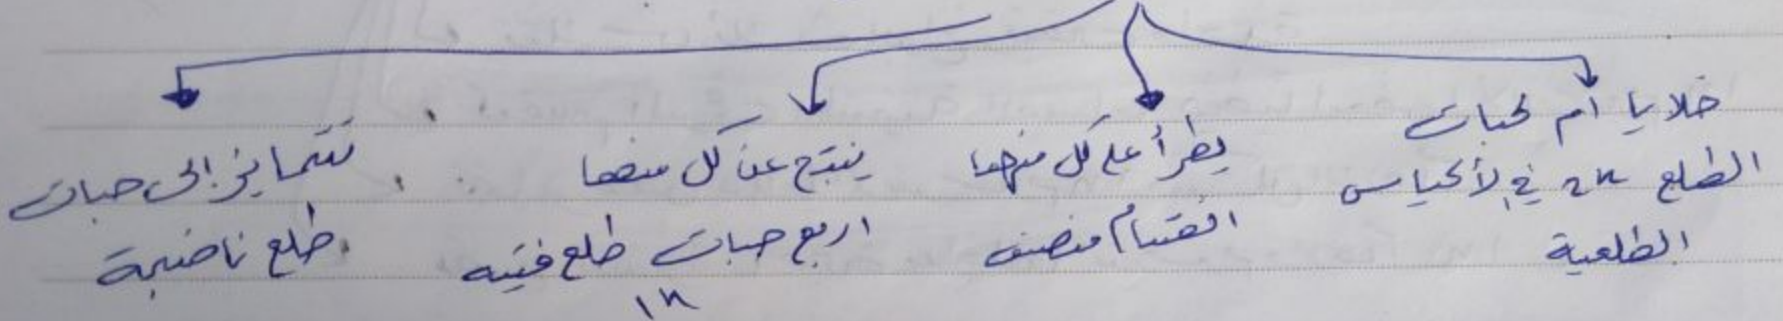 خلايا أم لحبات
الطلع 2n في الأكياس
الطلعية
يطرأ على كل منها
انقسام منصف
ينتج عن كل منها
اربع حبات طلع فتيه
1n
تتمايز الى حبات
طلع ناضجة